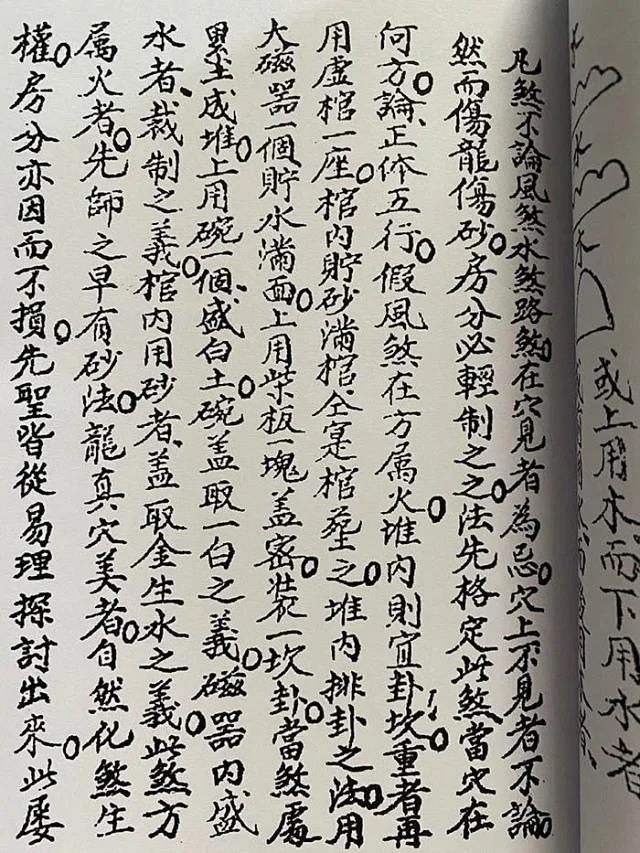 水
水
水
或上用水而下用水者
凡煞不論風煞水煞路煞。在穴見者為忌。穴上不見者不論。
然而傷龍傷砂。房分必輕制之。之法先格定此煞當穴在
何方。論正体五行。假風煞在方属火。堆内則宜卦坎重者。再
用虚棺一座。棺内貯砂滿棺、仝寔棺塟之。堆内排卦之法。用
大磁器一個貯水滿面。上用柴板一塊盖密。装一坎卦。當煞處
累土成堆。上用碗一個、盛白土碗盖取一白之義。磁器内盛
水者、裁制之義。棺内用砂者、盖取金生水之義。此煞方
属火者。先師之早有砂法。龍真穴美者。自然化煞生
權。房分亦因而不損。先聖皆從易理探討出來。此屡